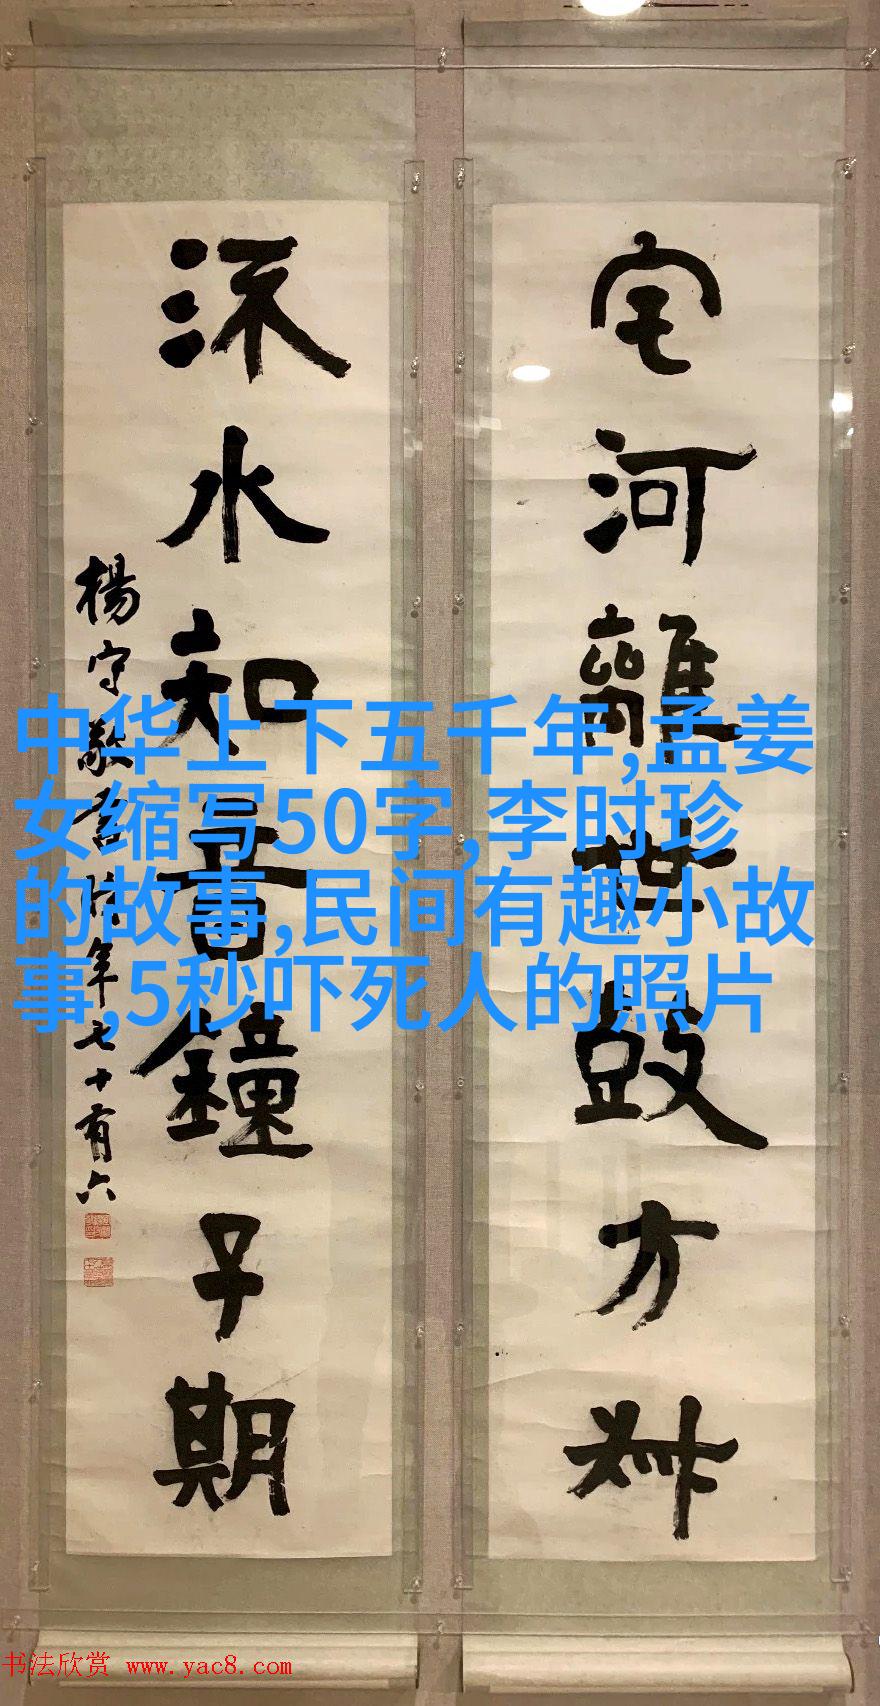 宅河離世鼓方叔
水知音鐘子期
楊守敬書時年七十有六
中华上下五千年,孟姜
女缩写50字,李时珍
的故事,民间有趣小故
事,5秒吓死人的照片
书法欣赏 www.yac8.com